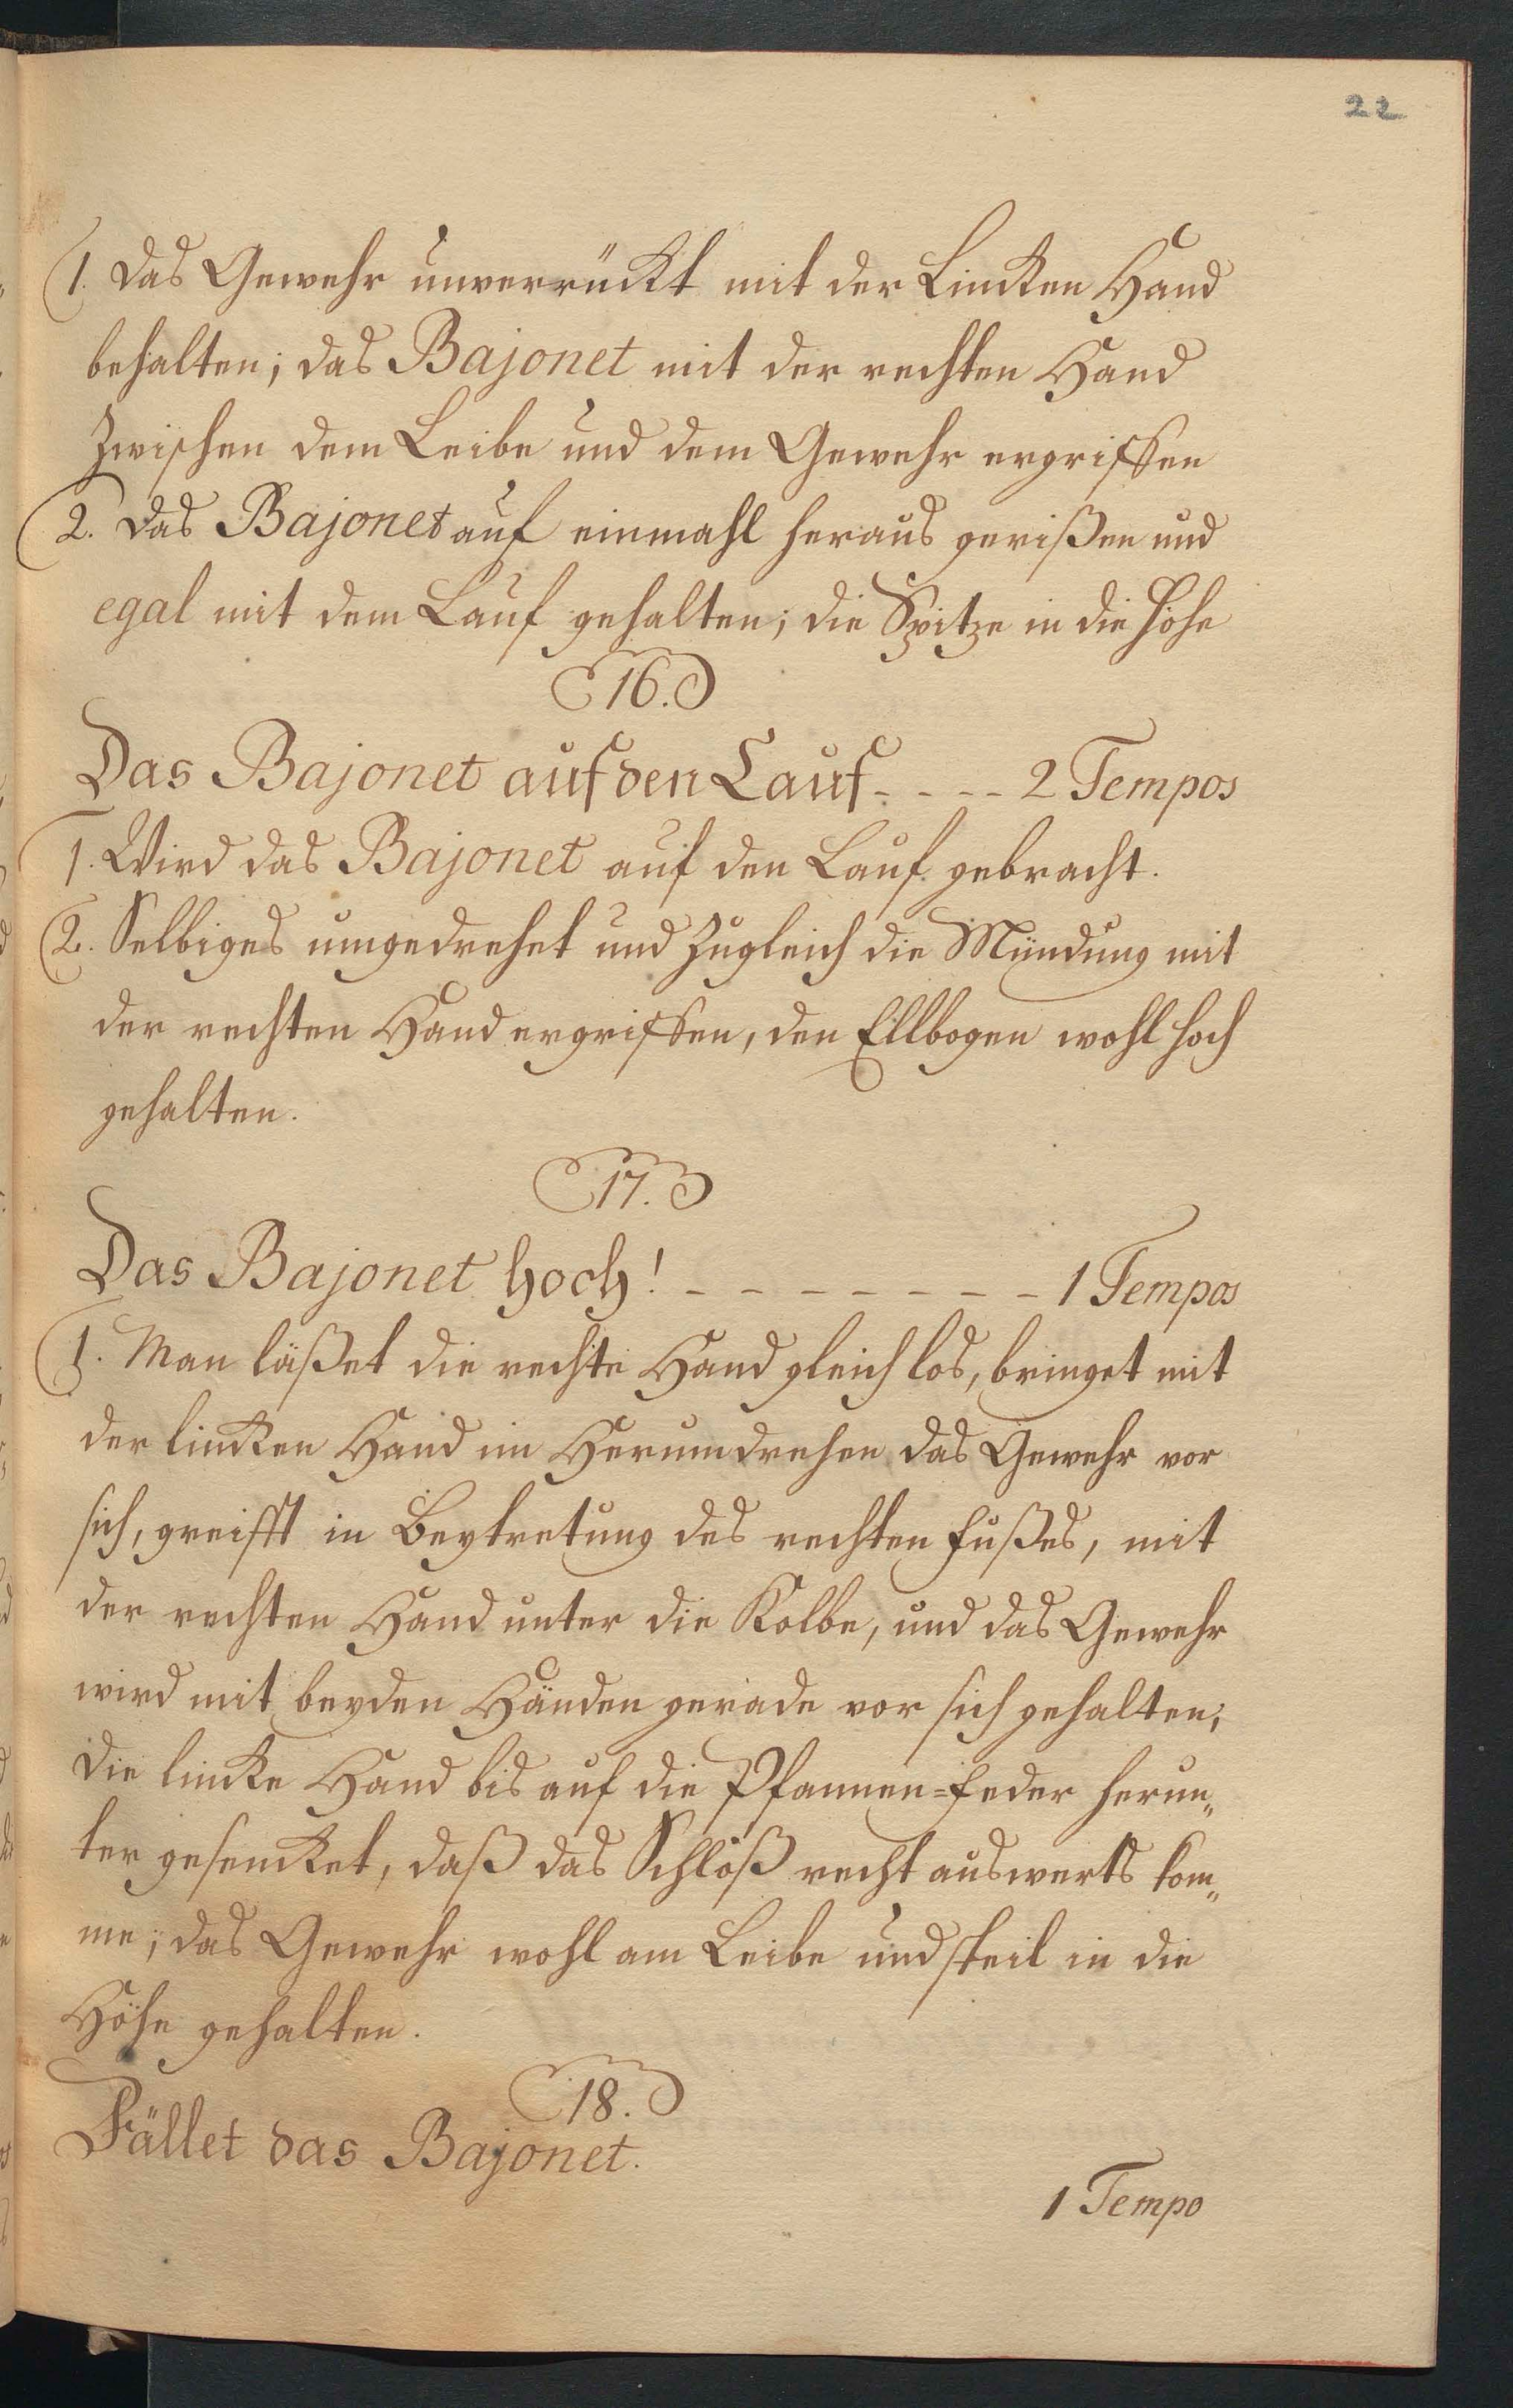 22
1. Das Gewehr unverrückt mit der Lincken Hand
behalten; das Bajonet mit der rechten Hand
Zwischen dem Leibe und dem Gewehr ergriffen
2. Das Bajonet auf einmahl heraus gerißen und
egal mit dem Lauf gehalten; die Spitze in die Höhe
16.
Das Bajonet auf den Lauf - - - - 2 Tempos
1. Wird das Bajonet auf den Lauf gebracht.
2. Selbiges umgedrehet und Zugleich die Mündung mit
der rechten Hand ergriffen, den Ellbogen wohl hoch
gehalten.
17.
Das Bajonet hoch! - - - - - - - - 1 Tempos
1. Man läßet die rechte Hand gleich los, bringet mit
der lincken Hand im Herumdrehen das Gewehr vor
sich, greifft in Beytretung des rechten Fußes, mit
der rechten Hand unter die Kolbe, und das Gewehr
wird mit beyden Händen gerade vor sich gehalten;
die lincke Hand bis auf die Pfannen=Feder herun„
ter gesencket, daß das Schloß recht auswerts kom„
me; das Gewehr wohl am Leibe und steil in die
Höhe gehalten.
18.
Fället das Bajonet.
1 Tempo